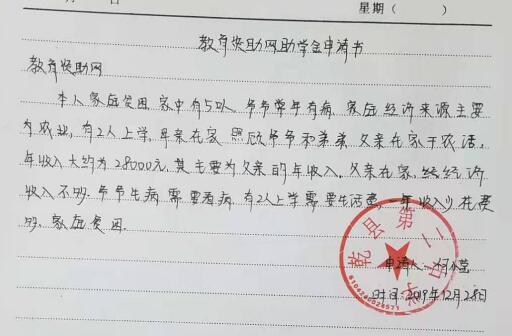 星期（ ）
教育资助网助学金申请书
教育资助网
本人家庭贫困，家中有5口人，爷爷常年有病，家庭经济来源主要
为农业，有2人上学，母亲在家照顾爷爷和弟弟，父亲在家干农活，
年收入大约为28000元，其主要为父亲的年收入，父亲在家，经济
收入不够，爷爷生病需要看病，有2人上学需要生活费，一年收入少花费
多，家庭贫困。
乾县第二中学
申请人：
时间：2019年12月28日
6104240026571